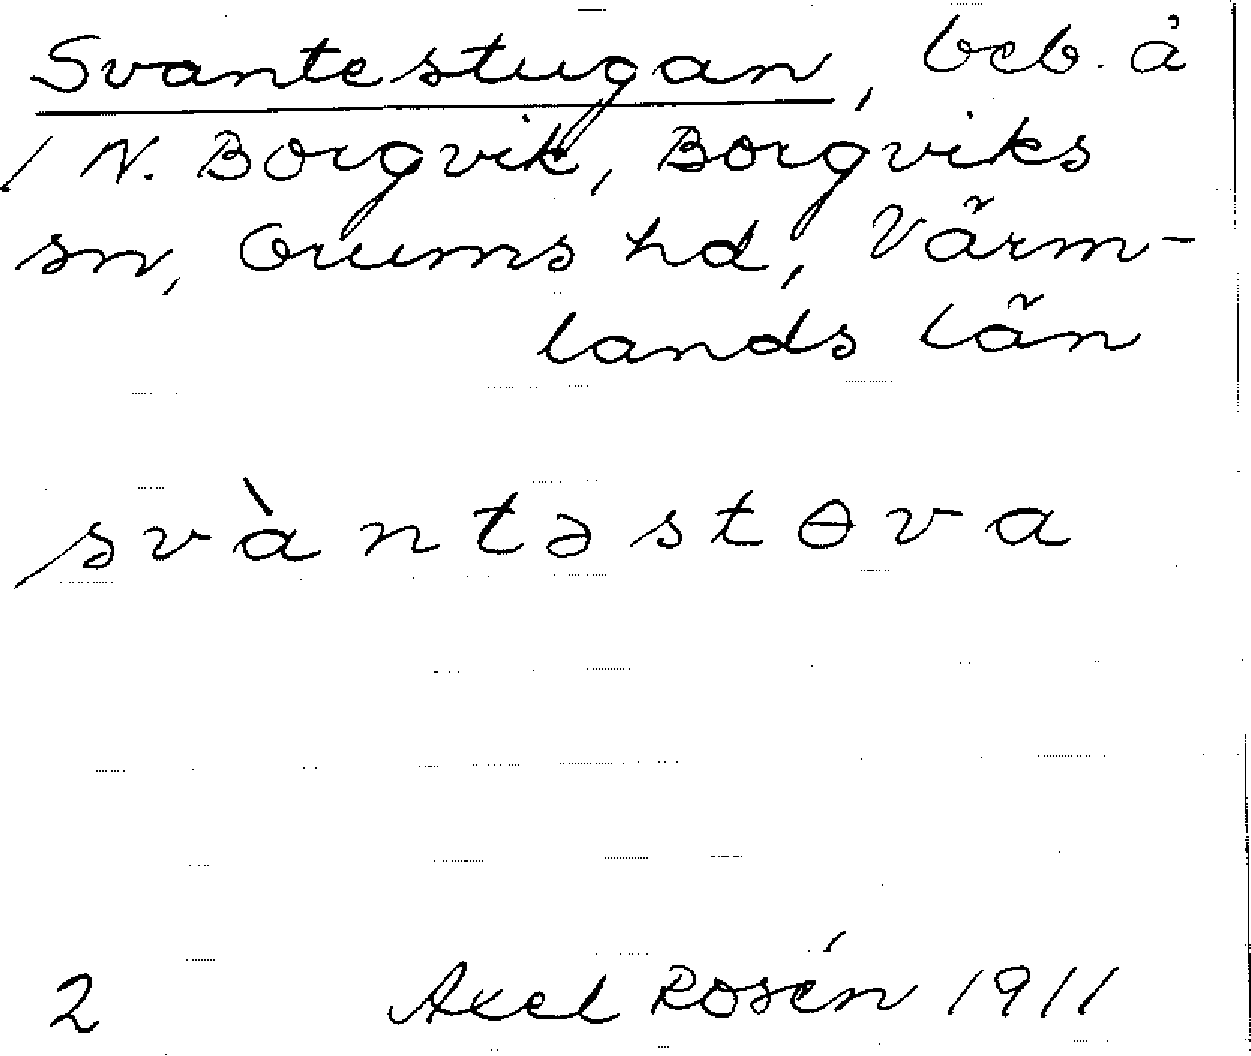 Svantestugan, beb. å
/ N. Borgvik, Borgviks
sn, Grums hd, Värm-
lands län
svàntəstɵva
2 Axel Rosén 1911